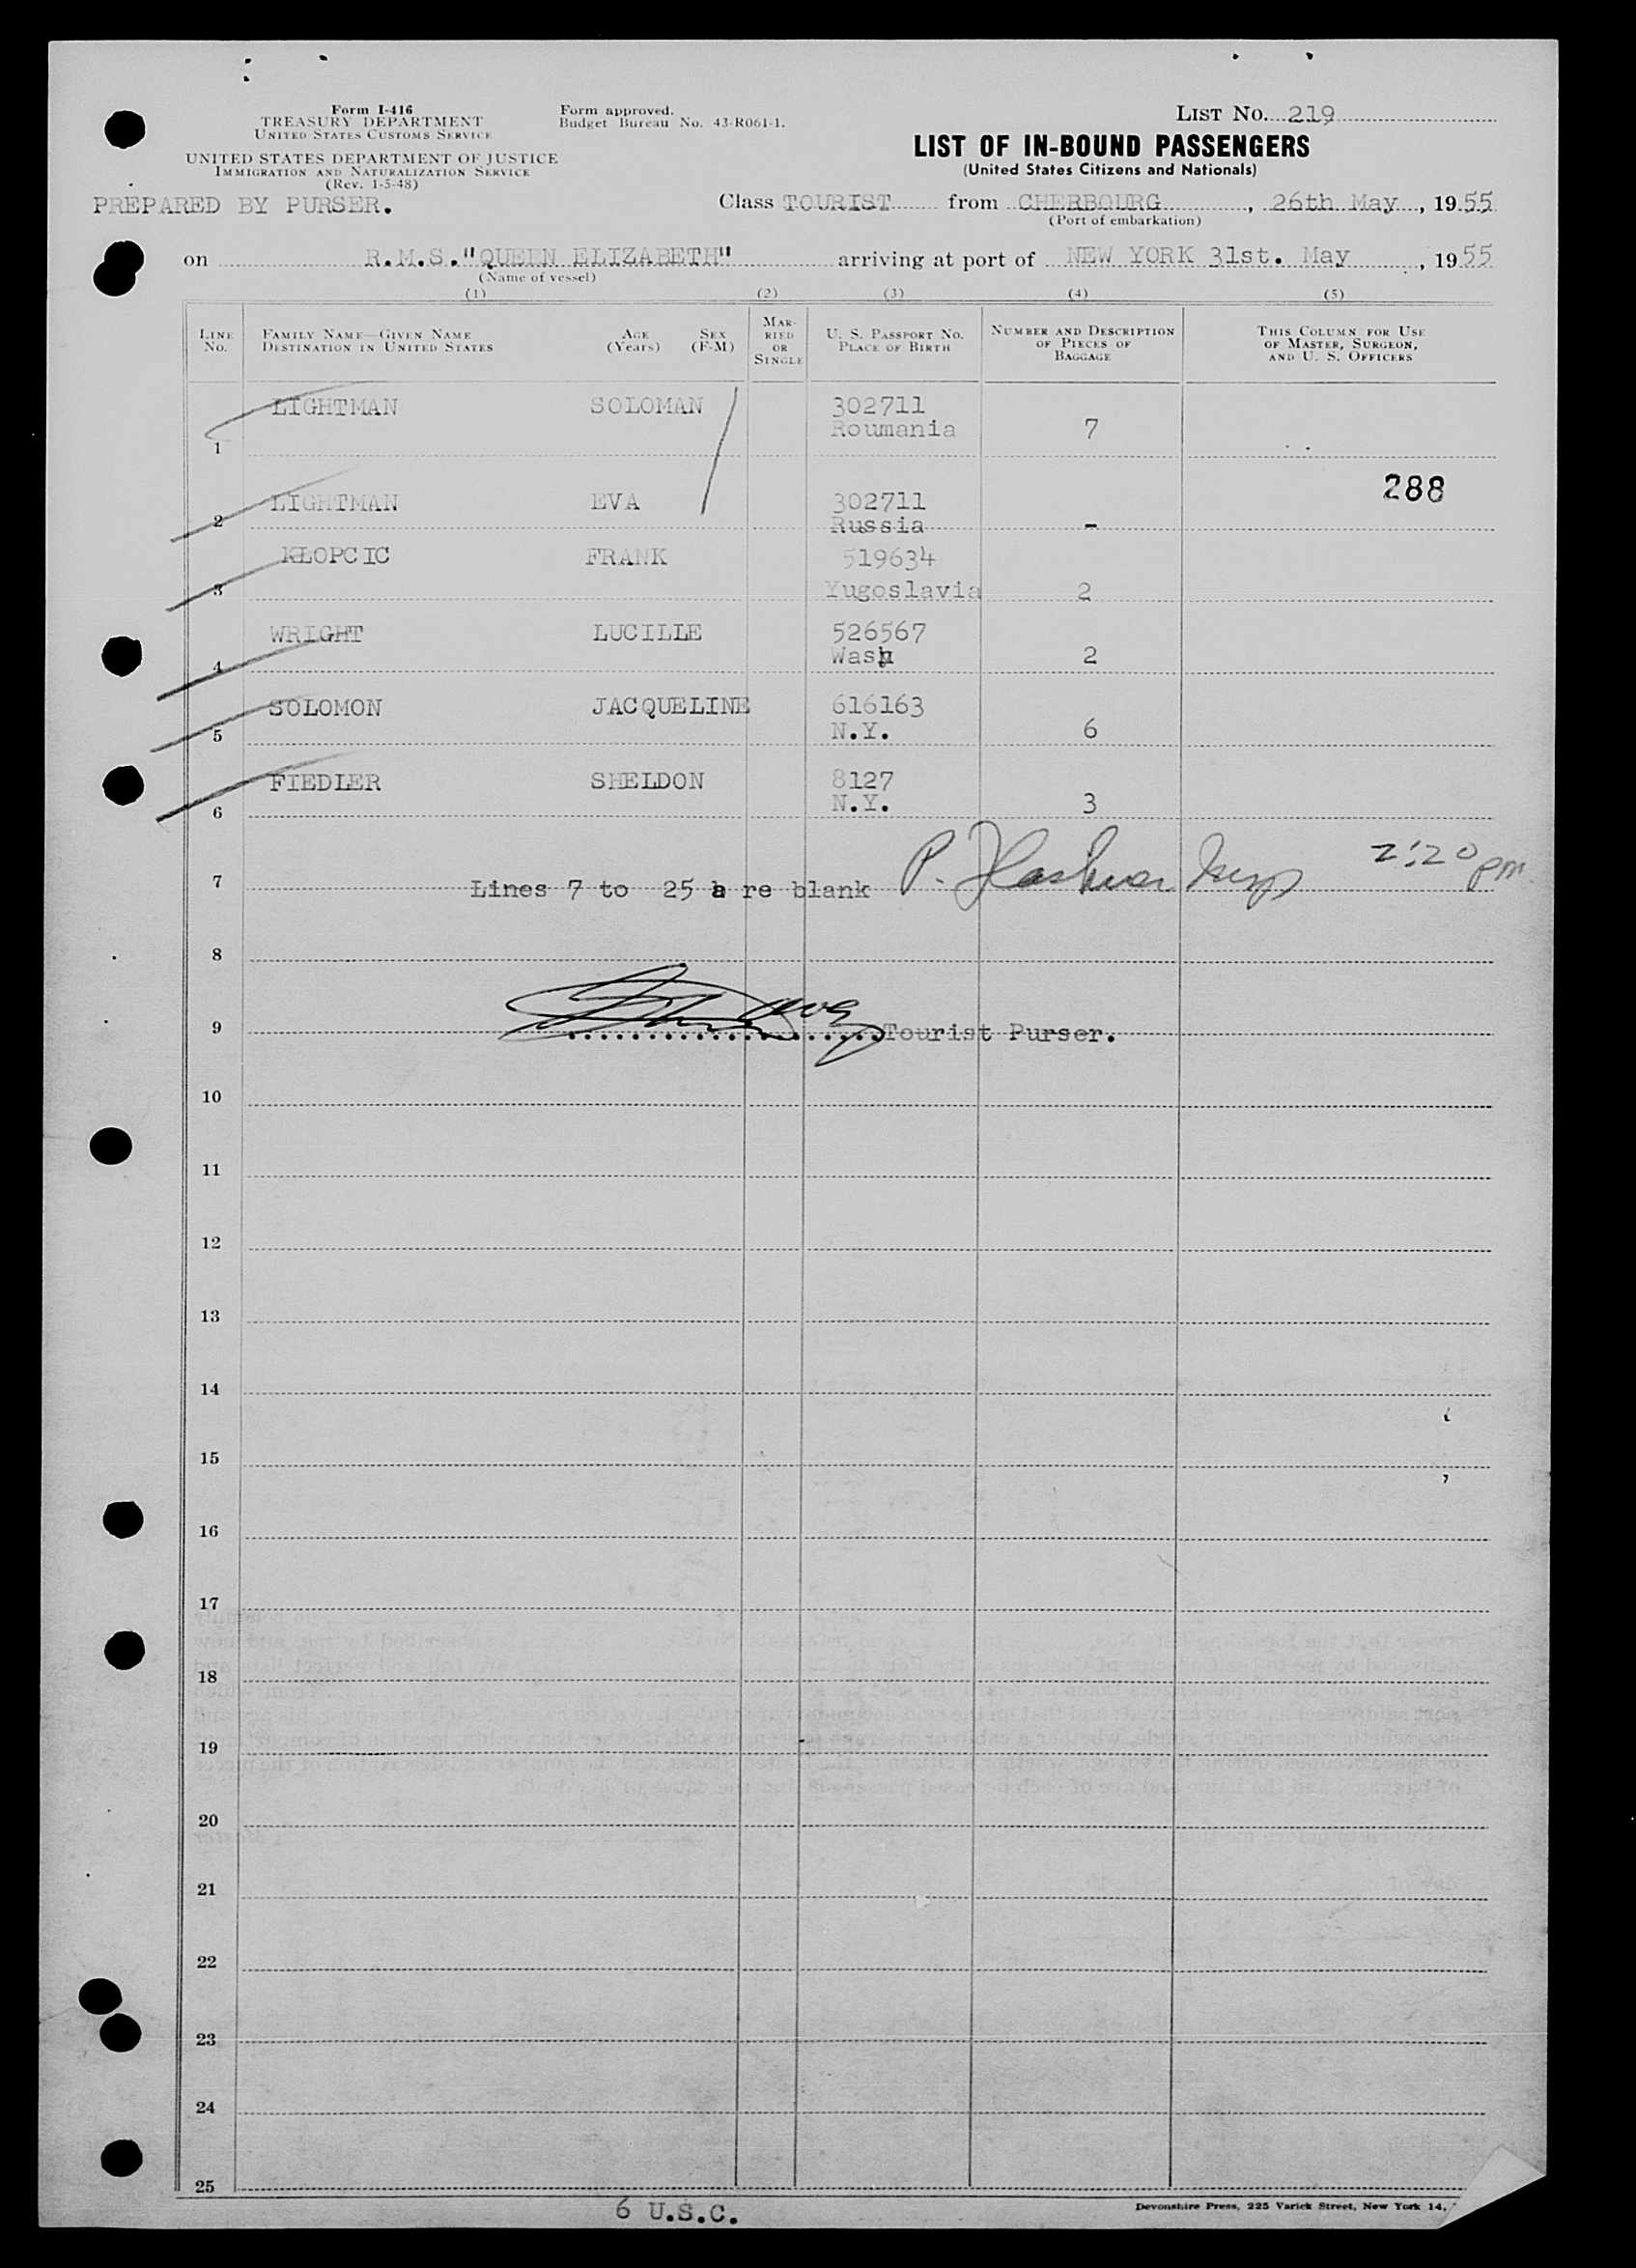 Form I-416
TREASURY DEPARTMENT
UNITED STATES CUSTOMS SERVICE
UNITED STATES DEPARTMENT OF JUSTICE
IMMIGRATION AND NATURALIZATION SERVICE
(Rev. 1-5-48)
Form approved.
Budget Bureau No. 43-R061-1.
LIST NO. 219
LIST OF IN-BOUND PASSENGERS
(United States Citizens and Nationals)
PREPARED BY PURSER.
Class TOURIST from CHERBOURG, 26th May, 1955
(Port of embarkation)
on R.M.S."QUEEN ELIZABETH" arriving at port of NEW YORK 31st. May, 1955
(Name of vessel)
(1) (2) (3) (4) (5)
LINE NO. FAMILY NAME—GIVEN NAME DESTINATION IN UNITED STATES AGE (Years) SEX (F-M) MARRIED OR SINGLE U. S. PASSPORT NO. PLACE OF BIRTH NUMBER AND DESCRIPTION OF PIECES OF BAGGAGE THIS COLUMN FOR USE OF MASTER, SURGEON, AND U. S. OFFICERS
LIGHTMAN SOLOMAN 302711
1 Roumania 7
288
LIGHTMAN EVA 302711
2 Russia -
KLOPCIC FRANK 519634
3 Yugoslavia 2
WRIGHT LUCILLE 526567
4 Wash 2
SOLOMON JACQUELINE 616163
5 N.Y. 6
FIEDLER SHELDON 8127
6 N.Y. 3
7 Lines 7 to 25 a re blank P. 2:20 pm
8
9 Tourist Purser.
10
11
12
13
14
15
16
17
18
19
20
21
22
23
24
25
6 U.S.C.
Devonshire Press, 225 Varick Street, New York 14,